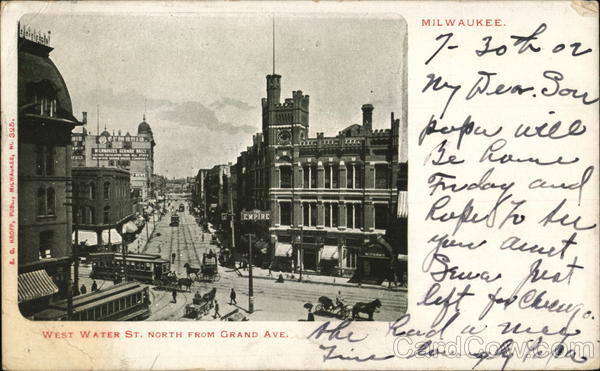 MILWAUKEE.
7-30th 02
My Dear Son
papa will
Be home
Friday and
hope to see
you aunt
just
left for Chicago.
She had a nice
Time
WEST WATER ST. NORTH FROM GRAND AVE.
E. C. KROPP, PUBL., MILWAUKEE, NO. 325.
GERMANIA
EMPIRE
CardCow.com